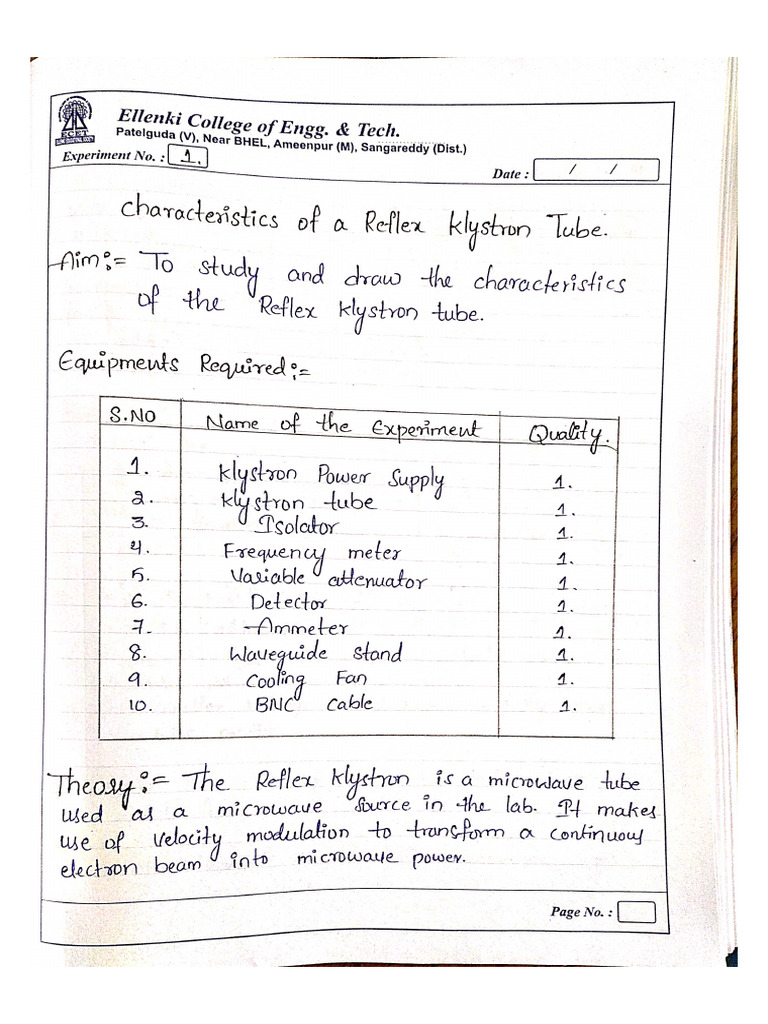 Ellenki College of Engg. & Tech.
Patelguda (V), Near BHEL, Ameenpur (M), Sangareddy (Dist.)
Experiment No. : 1.
Date : / /
ECET
Characteristics of a Reflex Klystron Tube.
Aim:= To study and draw the characteristics
of the Reflex Klystron tube.
Equipments Required:=
S.NO Name of the Experiment Quality.
1. Klystron Power Supply 1.
2. Klystron tube 1.
3. Isolator 1.
4. Frequency meter 1.
5. Variable attenuator 1.
6. Detector 1.
7. Ammeter 1.
8. Waveguide stand 1.
9. Cooling Fan 1.
10. BNC Cable 1.
Theory:= The Reflex Klystron is a microwave tube
used as a microwave source in the lab. It makes
use of velocity modulation to transform a continuous
electron beam into microwave power.
Page No. :